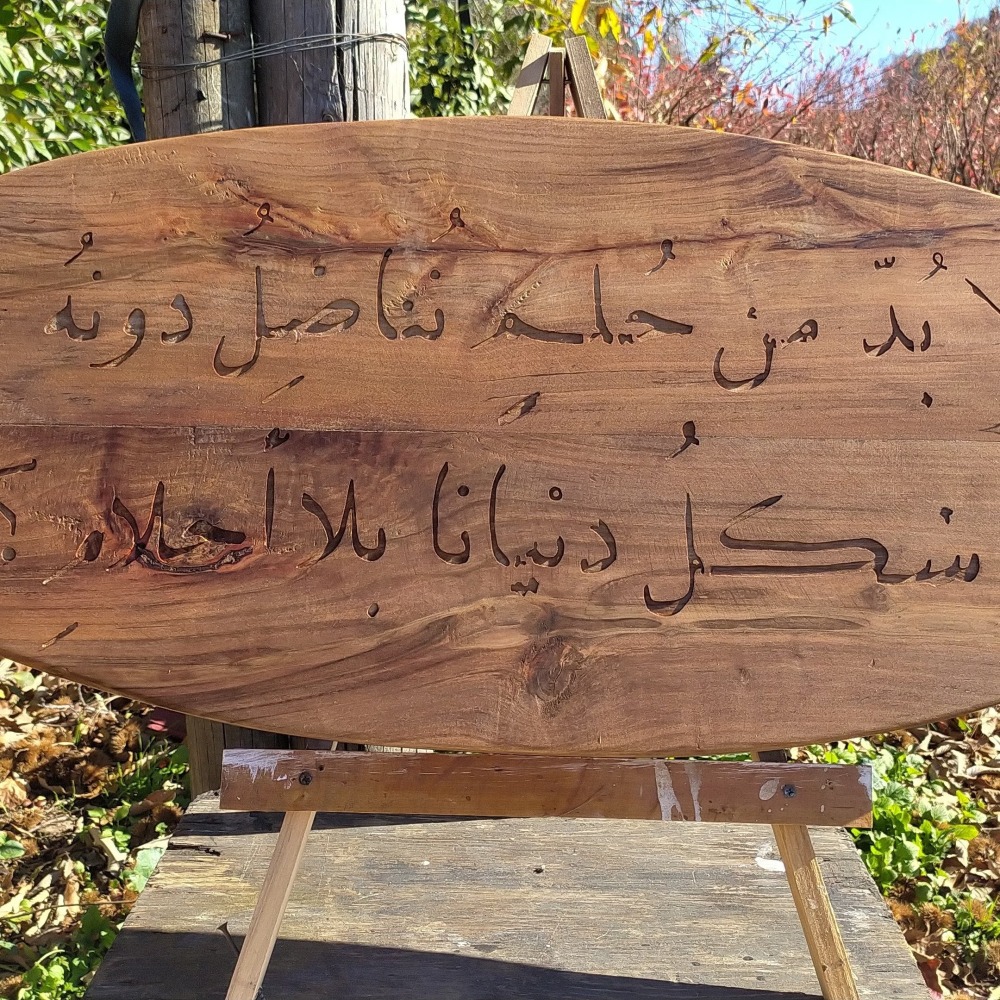 لا بُدّ من حُلمٍ نُناضِلُ دونهُ
شكلُ دنيانا بلا أحلامِ ؟